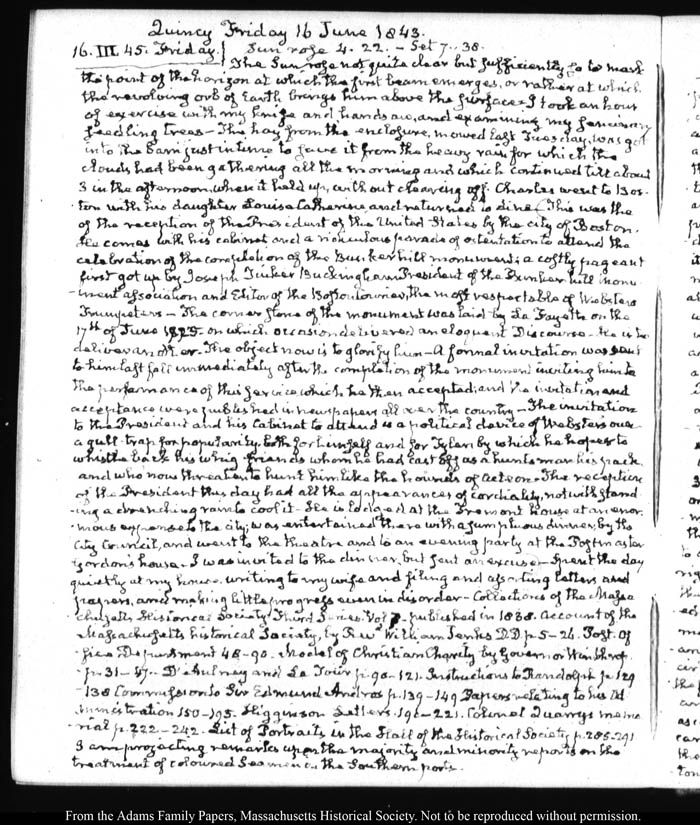 Quincy Friday 16 June 1843.
16. III. 45. Friday. Sun rose 4. 22. – Set 7. 38.
The Sun rose not quite clear but sufficiently so to mark
the point of the horizon at which the first beam emerges, or rather at which
the revolving orb of Earth brings him above the surface. I took an hour
of exercise with my knife and hands axe, and examining my
seedling trees – The hay from the enclosure, mowed last Tuesday, was got
into the barn just in time to save it from the heavy rain for which the
clouds had been gathering all the morning and which continued till about
3 in the afternoon, when it held up, without clearing off. Charles went to Bos-
ton with his daughter Louisa Catherine, and returned to dine. This was the
of the reception of the President of the United States by the city of Boston.
He comes with his cabinet and a ridiculous parade of ostentation to attend the
celebration of the completion of the Bunker hill monument; a costly pageant
first got up by Joseph Tinker Buckingham President of the Bunker hill monu-
-ment association and Editor of the Boston Courier, the most respectable of Websters
Trumpeters – The corner stone of the monument was laid by La Fayette on the
17th of June 1825. on which occasion delivered an eloquent Discourse – He is to
deliver another. The object now is to glorify him – A formal invitation was sent
to him last fall immediately after the completion of the monument inviting him to
the performance of this service which he then accepted; and the invitation and
acceptance were published in newspapers all over the country – The invitation
to the President and his Cabinet to attend is a political device of Websters own
a gull-trap for popularity, both for himself and for Tyler, by which he hopes to
whistle back his whig friends whom he had cast off as a huntsman his pack,
and who now threaten to hunt him like the hounds of Acteon. The reception
of the President this day had all the appearances of cordiality, notwithstand-
-ing a drenching rain to cool it – He is lodged at the Tremont house at an enor-
-mous expense to the city; was entertained there with a sumptuous dinner, by the
City Council, and went to the theatre and to an evening party at the Postmaster
Gordon's house. I was invited to the dinner, but sent an excuse – Spent the day
quietly at my house, writing to my wife and filing and assorting letters and
papers, and making little progress even in disorder – Collections of the Massa-
chusetts Historical Society Third Series. Vol 7. published in 1838. Account of the
Massachusetts historical Society, by Revd William Jenks D.D. p. 5–26. Post. Of-
fice Department 48–90. Model of Christian Charity by Governor Winthrop.
p. 31–47. D'Aulney and La Tour p. 90–121. Instructions to Randolph p. 129
-138 Commission to Sir Edmund Andros p. 139–149 Papers relating to his Ad
ministration 150–195. Higginson Letters. 196–221. Colonel Quarry's memo-
rial p. 222–242. List of Portraits in the Hall of the Historical Society p. 285–291
I am projecting remarks upon the majority and minority reports on the
treatment of coloured Seamen in the Southern ports.
From the Adams Family Papers, Massachusetts Historical Society. Not to be reproduced without permission.